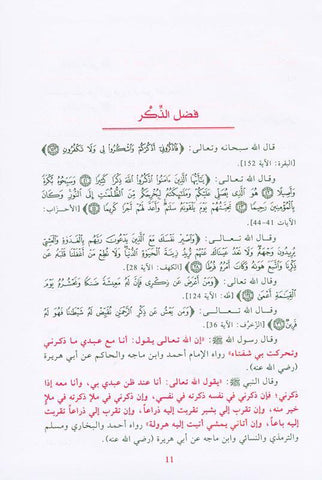 فضل الذِّكْر
قال الله سبحانه وتعالى: ﴿فَاذْكُرُونِي أَذْكُرْكُمْ وَاشْكُرُوا لِي وَلَا تَكْفُرُونِ ﴿١٥٢﴾﴾
[البقرة: الآية 152].
وقال الله تعالى: ﴿يَا أَيُّهَا الَّذِينَ آمَنُوا اذْكُرُوا اللَّهَ ذِكْرًا كَثِيرًا ﴿٤١﴾ وَسَبِّحُوهُ بُكْرَةً
وَأَصِيلًا ﴿٤٢﴾ هُوَ الَّذِي يُصَلِّي عَلَيْكُمْ وَمَلَائِكَتُهُ لِيُخْرِجَكُمْ مِنَ الظُّلُمَاتِ إِلَى النُّورِ وَكَانَ
بِالْمُؤْمِنِينَ رَحِيمًا ﴿٤٣﴾ تَحِيَّتُهُمْ يَوْمَ يَلْقَوْنَهُ سَلَامٌ وَأَعَدَّ لَهُمْ أَجْرًا كَرِيمًا ﴿٤٤﴾﴾ [الأحزاب:
الآيات 41-44].
وقال الله تعالى: ﴿وَاصْبِرْ نَفْسَكَ مَعَ الَّذِينَ يَدْعُونَ رَبَّهُمْ بِالْغَدَاةِ وَالْعَشِيِّ
يُرِيدُونَ وَجْهَهُ وَلَا تَعْدُ عَيْنَاكَ عَنْهُمْ تُرِيدُ زِينَةَ الْحَيَاةِ الدُّنْيَا وَلَا تُطِعْ مَنْ أَغْفَلْنَا قَلْبَهُ عَنْ
ذِكْرِنَا وَاتَّبَعَ هَوَاهُ وَكَانَ أَمْرُهُ فُرُطًا ﴿٢٨﴾﴾ [الكهف: الآية 28].
وقال الله تعالى: ﴿وَمَنْ أَعْرَضَ عَنْ ذِكْرِي فَإِنَّ لَهُ مَعِيشَةً ضَنْكًا وَنَحْشُرُهُ يَوْمَ
الْقِيَامَةِ أَعْمَى ﴿١٢٤﴾﴾ [طه: الآية 124].
وقال الله تعالى: ﴿وَمَنْ يَعْشُ عَنْ ذِكْرِ الرَّحْمَنِ نُقَيِّضْ لَهُ شَيْطَانًا فَهُوَ لَهُ
قَرِينٌ ﴿٣٦﴾﴾ [الزّخرُف: الآية 36].
وقال رسول الله ﷺ: «إن الله تعالى يقول: أنا مع عبدي ما ذكرني
وتحركت بي شفتاه» رواه الإمام أحمد وابن ماجه والحاكم عن أبي هريرة
(رضي الله عنه).
وقال النبي ﷺ: «يقول الله تعالى: أنا عند ظن عبدي بي، وأنا معه إذا
ذكرني؛ فإن ذكرني في نفسه ذكرته في نفسي، وإن ذكرني في ملإ ذكرته في ملإ
خير منه، وإن تقرب إلي بشبر تقربت إليه ذراعاً، وإن تقرب إلي ذراعاً تقربت
إليه باعاً، وإن أتاني يمشي أتيت إليه هرولة» رواه أحمد والبخاري ومسلم
والترمذي والنسائي وابن ماجه عن أبي هريرة (رضي الله عنه).
11